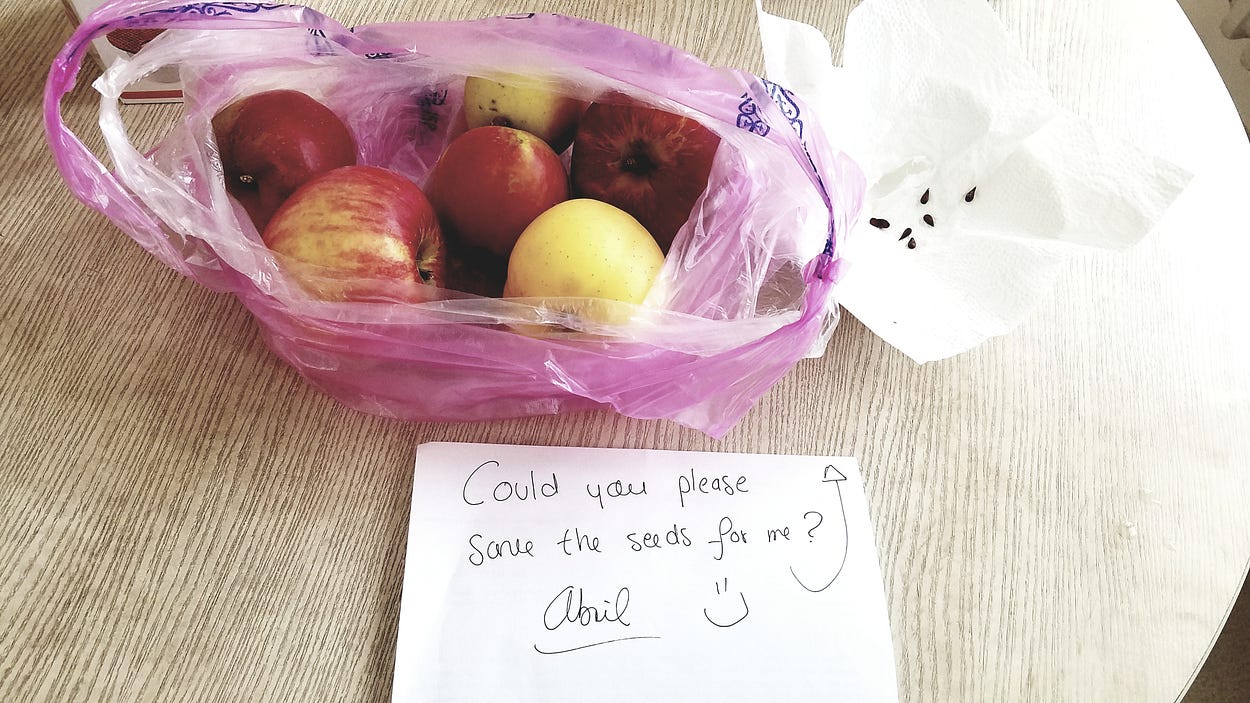 Could you please
save the seeds for me?
Abril